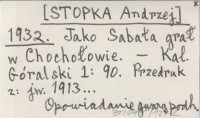 [STOPKA Andrzej]
1932. Jako Sabała grał
w Chochołowie. — Kal.
Góralski 1: 90. Przedruk
z: jw. 1913...
Opowiadanie gwarą podh.